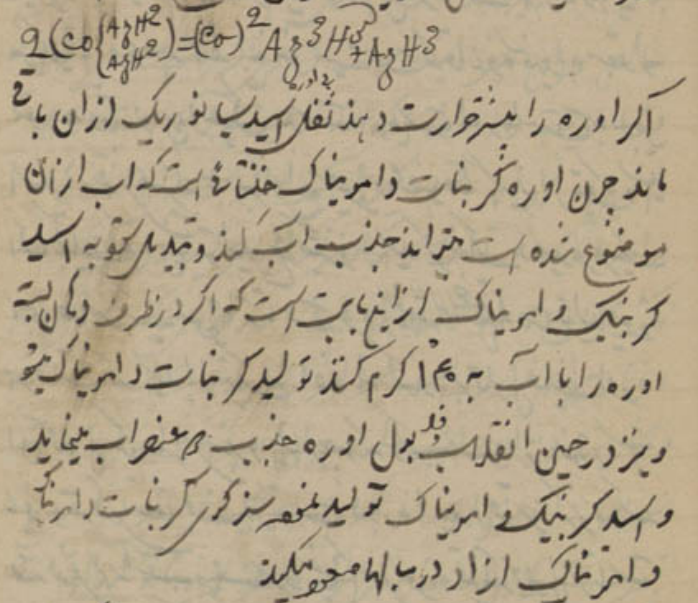 2(Co{AzH² AzH²)=(Co)²Az³H³+AzH³
اگر اوره را بیشتر حرارت دهند ثفلی اسید سیانوریک ازان باقی
ماند چون اوره کربنات دامونیاک خنثائی است که اب ازان
موضوع شده است میتواند جذب اب کند و تبدیل شود به اسید
کربنیک و امونیاک ازاین بابت است که اگر در ظرف دهان بسته
اوره را با اب به ۱۴۰ گرم کنند تولید کربنات دامونیاک میشود
و نیز در حین انقلاب بول اوره جذب عنصر اب مینماید
و اسید کربنیک و امونیاک تولید سزکوی کربنات دامونیاک
و امونیاک ازاد در بولها میکنند